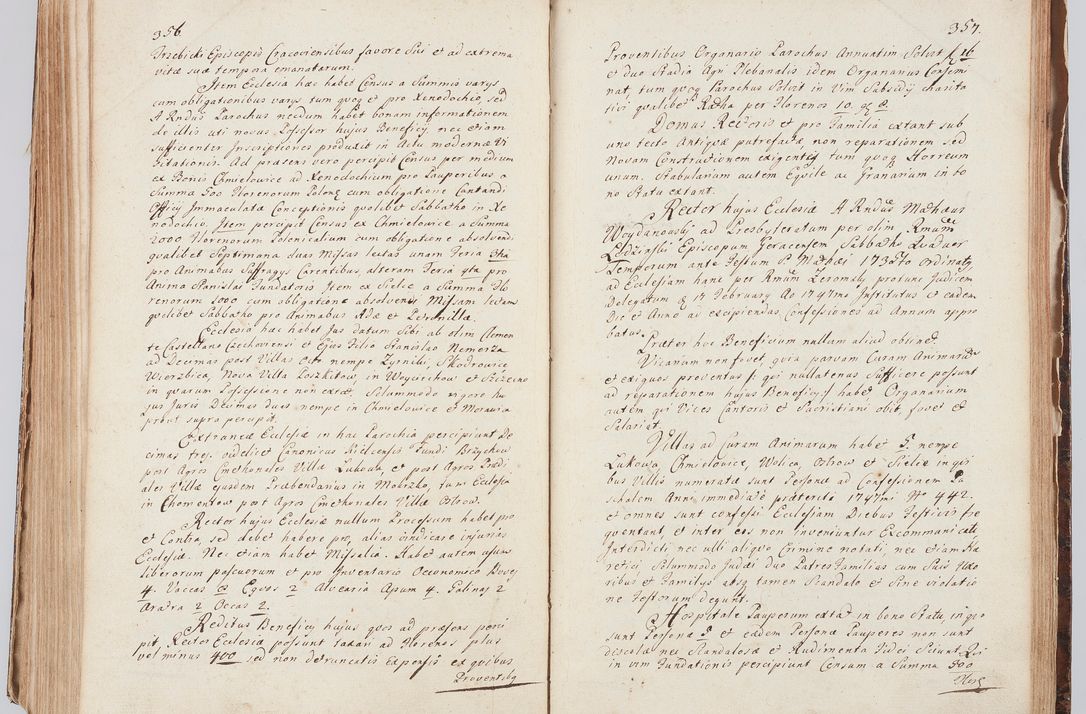 356.
Trzebicki Episcopis Cracoviensibus favore Sui et ad extrema
vitæ suæ tempora emanatarum.
Item Ecclesia hæc habet Census a Summis varys
cum obligationibus varys tum quoq et pro Xenodochio, sed
A Rndus Parochus necdum habet bonam informationem
de illis uti novus Possessor hujus Beneficy, nec etiam
sufficienter Inscriptiones produxit in Actu modernæ Vi
sitationis. Ad præsens vero percipit Census per medium
ex Bonis Chmielowice ad Xenodochium pro Pauperibus a
Summa 500 Florenorum Polon cum obligatione Cantandi
Officy Immaculatæ Conceptionis quolibet Sabbatho in Xe
nodochio. Item percipit Census ex Chmielowice a Summa
2000 Florenorum Polonicalium cum obligatione absolvendi
qualibet Septimana duas Missas lectas unam Feria 3tia
pro Animabus Suffragys Carentibus, alteram Feria 4ta pro
Anima Stanislai Fundatoris Item ex Sielce a Summa Flo
renorum 1000 cum obligatione absolvendi Missam lectam
quolibet Sabbatho pro Animabus Adæ et Petronillæ.
Ecclesia hæc habet Jus datum Sibi ab olim Clemen
te Castellano Czechoviensi et Ejus Filio Stanislao Nemerza
ad Decimas post Villas Octo nempe Zyrniki, Skodrowice
Wierzbica, Nova Villa Loszkitow, in Woyciechow et Szczecno
in quarum Possessione non extat. Solummodo vigore hu
jus Juris Decimas duas nempe in Chmielowice et Morawia
prout supra percipit.
Extraneæ Ecclesiæ in hac Parochia percipiunt De
cimas tres. videlicet Canonicus Kielcensis Fundi Brzychow
post Agros Cmethonales Villæ Lukowa, et post Agros Prædi
ales Villæ ejusdem Præbendarius in Mokrzko, tum Ecclesia
in Chomentow post Agros Cmethonales Villæ Ostrow.
Rector hujus Ecclesiæ nullum Processum habet pro
et Contra, sed debet habere pro, alias vindicare injurias
Ecclesiæ. Nec etiam habet Missalia. Habet autem usum
liberorum pascuorum et pro Inventario Oeconomico Boves
4. Vaccas Equos 2 Alvearia Apum 4. Galinas 2
Aratra 2 Occas 2.
Reditus Beneficy hujus quos ad præsens perci
pit Rector Ecclesiæ possunt taxari ad Florenos plus
vel minus 400 sed non detruncatis expensis ex quibus
Proventibq
357.
Proventibus Organario Parochus Annuatim Solvit 16
et duo Stadia Agri Plebanalis idem Organarius Consemi
nat, tum quoq Parochus Solvit in Vim Subsidy charita
tivi qualibet Ratha per Florenos 10. 8.
Domus Rectoris et pro Familia extant sub
uno tecto Antiquæ putrefactæ, non reparationem sed
Novam Constructionem exigentes tum quoq Horreum
unum. Stabularium autem Equile ac Granarium in bo
no Statu extant.
Rector hujus Ecclesiæ A Rndus Mathæus
Woydanowski ad Presbyteratum per olim Rmum
Episcopum Geracensem Sabbatho Quatuor
Temporum ante Festum S. Mathæi 1738vo Ordinatq
ad Ecclesiam hanc per Rmum Zeromski pronunc Judicem
Delegatum 17 February Ao 1747mo Institutus et eadem
Die et Anno ad excipiendas Confessiones ad Annum appro
batus.
Præter hoc Beneficium nullum aliud obtinet.
Vicarium non fovet quia parvam Curam Animarum
et exiguos proventus /: qui nullatenus Sufficere possunt
ad reparationem hujus Beneficy :/ habet Organarium
autem qui Vices Cantoris et Sacristiani obit, fovet et
Salariat.
Villas ad Curam Animarum habet 5. nempe
Lukowa, Chmielowice, Wolica, Ostrow et Sielce in qui
bus Villis numeratæ sunt Personæ ad Confessionem Pa
schalem Anni immediate præteriti 1747mi No 442.
et omnes sunt confessi Ecclesiam Diebus Festivis fre
quentant, et inter eos non inveniuntur Excommunicati
Interdicti, nec ulli aliquo Crimine notati, nec etiam Hæ
retici, Solummodo Judæi duo Patres Familias cum Suis Uxo
ribus et Familys absq tamen Scandalo et Sine violatio
ne Festorum degunt.
Hospitale Pauperum extat in bono Statu, in quo
sunt Personæ 5 et eædem Personæ Pauperes non sunt
discolæ, nec Scandalosæ et Rudimenta Fidei Sciunt Qui
in vim Fundationis percipiunt Censum a Summa 500
Flore